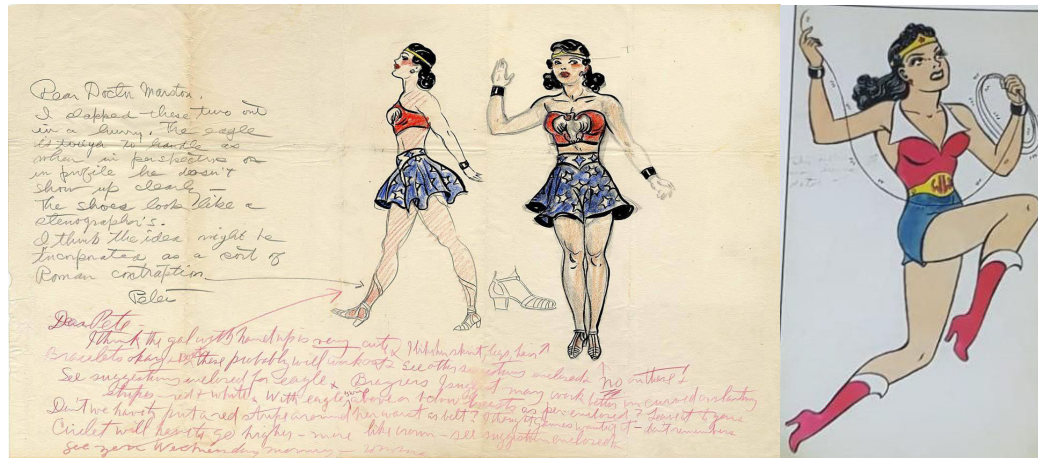 Dear Doctor Marston,
I slapped these two out
in a hurry. The eagle
is tough to handle as
when in perspective or
in profile he doesn't
show up clearly —
The shoes look like a
stenographer's.
I think the idea might be
incorporated as a sort of
Roman contraption
Peter
Dear Pete —
I think the gal with hand up is very cute. I like her skirt, legs, hair
Bracelets okay + these probably will work out. See other suggestions enclosed. No
See suggestions enclosed for eagle
stripes - red + white. With eagle's above or below as per enclosed?
Don't we have to put a red stripe around her waist as belt? I thought Gaines wanted it - don't remember
Circlet will have to go higher - more like crown - see suggestion enclosed
See you Wednesday morning -